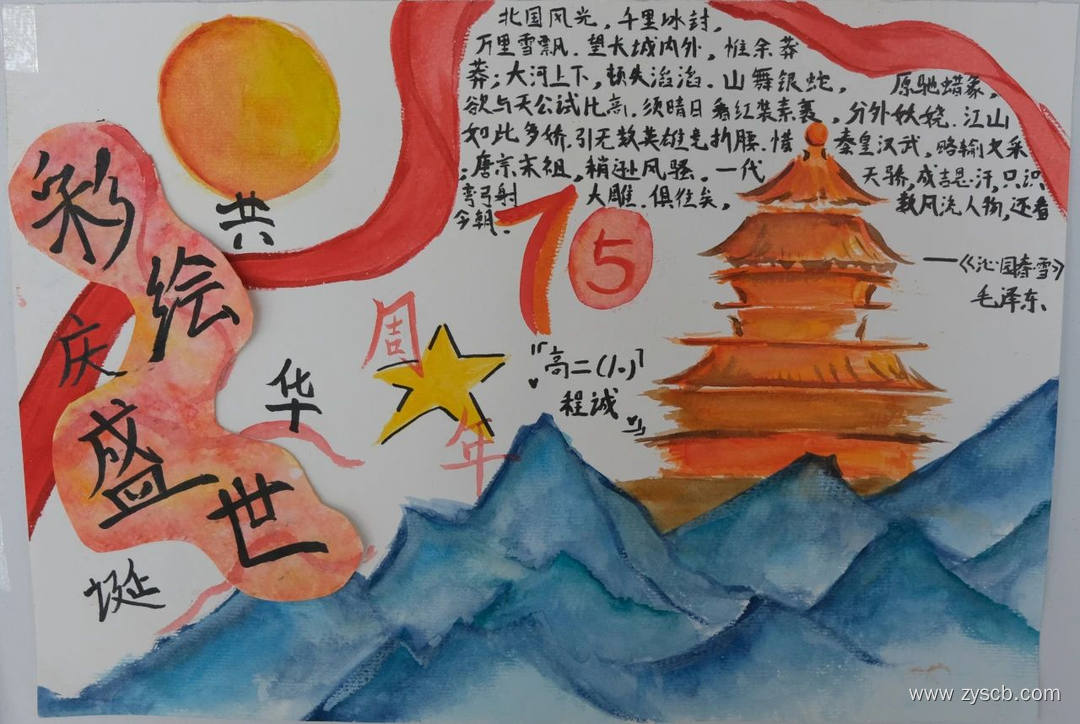 北国风光，千里冰封，
万里雪飘.望长城内外，惟余莽
莽；大河上下，顿失滔滔.山舞银蛇，原驰蜡象，
欲与天公试比高.须晴日看红装素裹，分外妖娆.江山
如此多娇.引无数英雄竞折腰.惜秦皇汉武，略输文采
；唐宗宋祖，稍逊风骚.一代天骄，成吉思汗，只识
弯弓射大雕.俱往矣，数风流人物，还看
今朝.
——《沁园春·雪》
毛泽东
彩绘盛世
共庆华诞
75
周年
高二(10)
程诚
www.zyscb.com